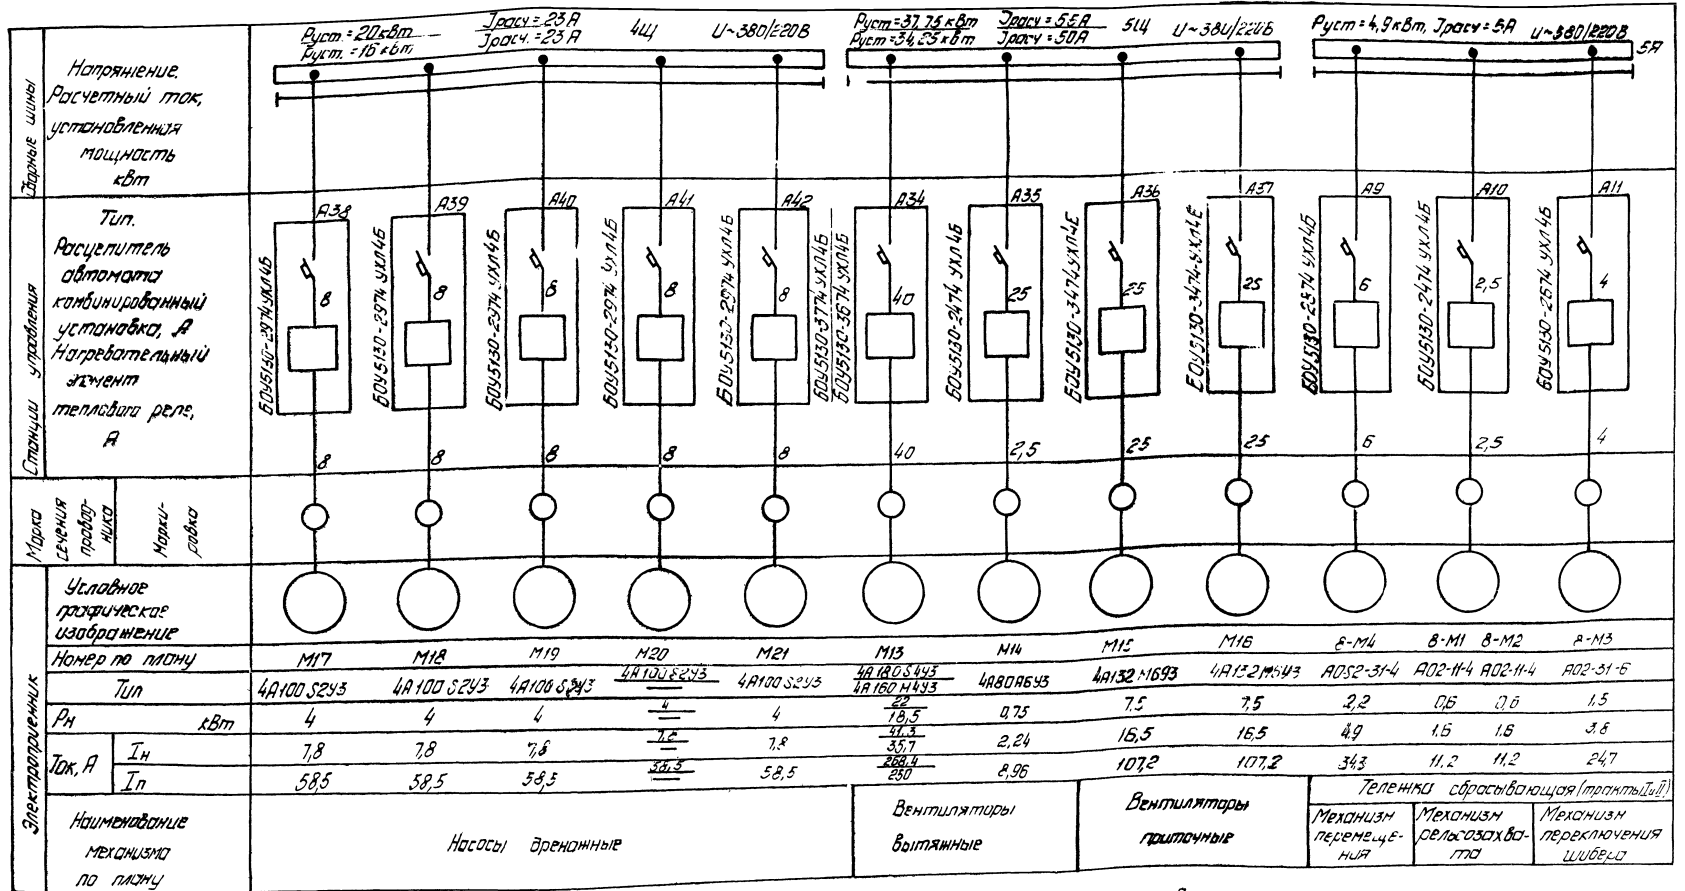 Сборные шины
Напряжение.
Расчетный ток,
установленная
мощность
кВт
Pуст.=20кВт
Pуст.=16кВт
Jрасч=23А
Jрасч.=23А
4Щ
U~380/220В
Pуст=37,75кВт
Pуст=34,25кВт
Jрасч=55А
Jрасч=50А
5Щ
U~380/220В
Pуст=4,9кВт, Jрасч=5А
U~380/220В
5А
Станции управления
Тип.
Расцепитель
автомата
комбинированный
установка, А
Нагревательный
элемент
теплового реле,
А
А38 А39 А40 А41 А42 А34 А35 А36 А37 А9 А10 А11
БОУ5130-2974УХЛ4Б
БОУ5130-2974 УХЛ4Б
БОУ5130-2974 УХЛ4Б
БОУ5130-2974 УХЛ4Б
БОУ5130-2974 УХЛ4Б
БОУ5130-3774 УХЛ4Б
БОУ5130-3674 УХЛ4Б
БОУ5130-2474 УХЛ4Б
БОУ5130-3474 УХЛ4Б
БОУ5130-3474 УХЛ4Б
БОУ5130-2874 УХЛ4Б
БОУ5130-2474 УХЛ4Б
БОУ5130-2674 УХЛ4Б
8 8 8 8 8 40 25 25 25 6 2,5 4
8 8 8 8 8 40 2,5 25 25 6 2,5 4
Марка
сечения
проводника
Марки-
ровка
Электроприемник
Условное
графическое
изображение
Номер по плану М17 М18 М19 М20 М21 М13 М14 М15 М16 8-М4 8-М1 8-М2 8-М3
Тип 4А100S2У3 4А100S2У3 4А100S2У3 4А100S2У3 — 4А100S2У3 4А180S4У3 4А160М4У3 4А80А6У3 4А132М6У3 4А132М6У3 АОS2-31-4 АО2-11-4 АО2-11-4 АО2-31-6
Pн кВт 4 4 4 4 — 4 22 18,5 0,75 7,5 7,5 2,2 0,6 0,6 1,5
Ток, А
Iн 7,8 7,8 7,8 7,8 — 7,8 41,3 35,7 2,24 16,5 16,5 4,9 1,6 1,6 3,8
Iп 58,5 58,5 58,5 58,5 — 58,5 268,4 250 8,96 107,2 107,2 34,3 11,2 11,2 24,7
Наименование
механизма
по плану
Насосы дренажные
Вентиляторы
вытяжные
Вентиляторы
приточные
Тележка сбрасывающая (тракты I и II)
Механизм
перемеще-
ния
Механизм
рельсозахва-
та
Механизм
переключения
шибера